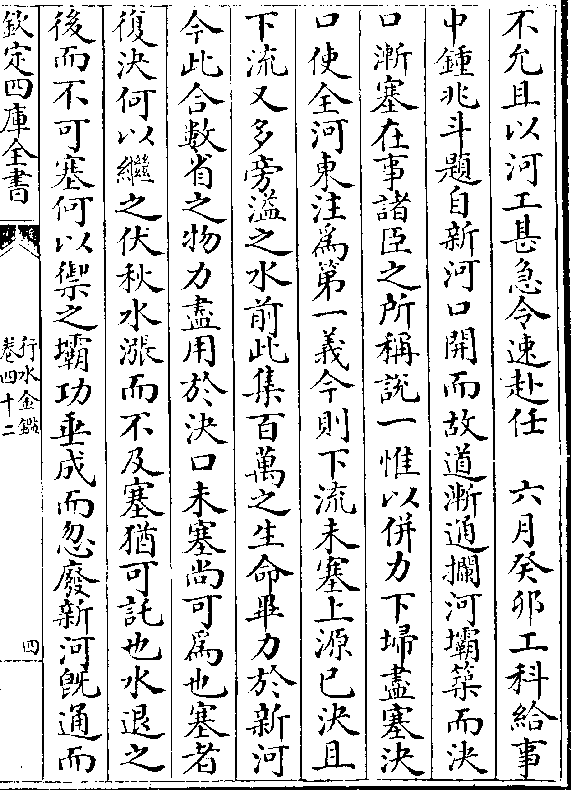 不允且以河工甚急令速赴任　六月癸卯工科給事
中鍾兆斗題自新河口開而故道漸通攔河壩築而決
口漸塞在事諸臣之所稱說一惟以併力下埽盡塞決
口使全河東注爲第一義今則下流未塞上源已決且
下流又多旁溢之水前此集百萬之生命畢力於新河
今此合數省之物力盡用於決口未塞尚可爲也塞者
復決何以繼之伏秋水漲而不及塞猶可託也水退之
後而不可塞何以禦之壩功垂成而忽廢新河旣通而
欽定四庫全書
行水金鑑
卷四十二
四